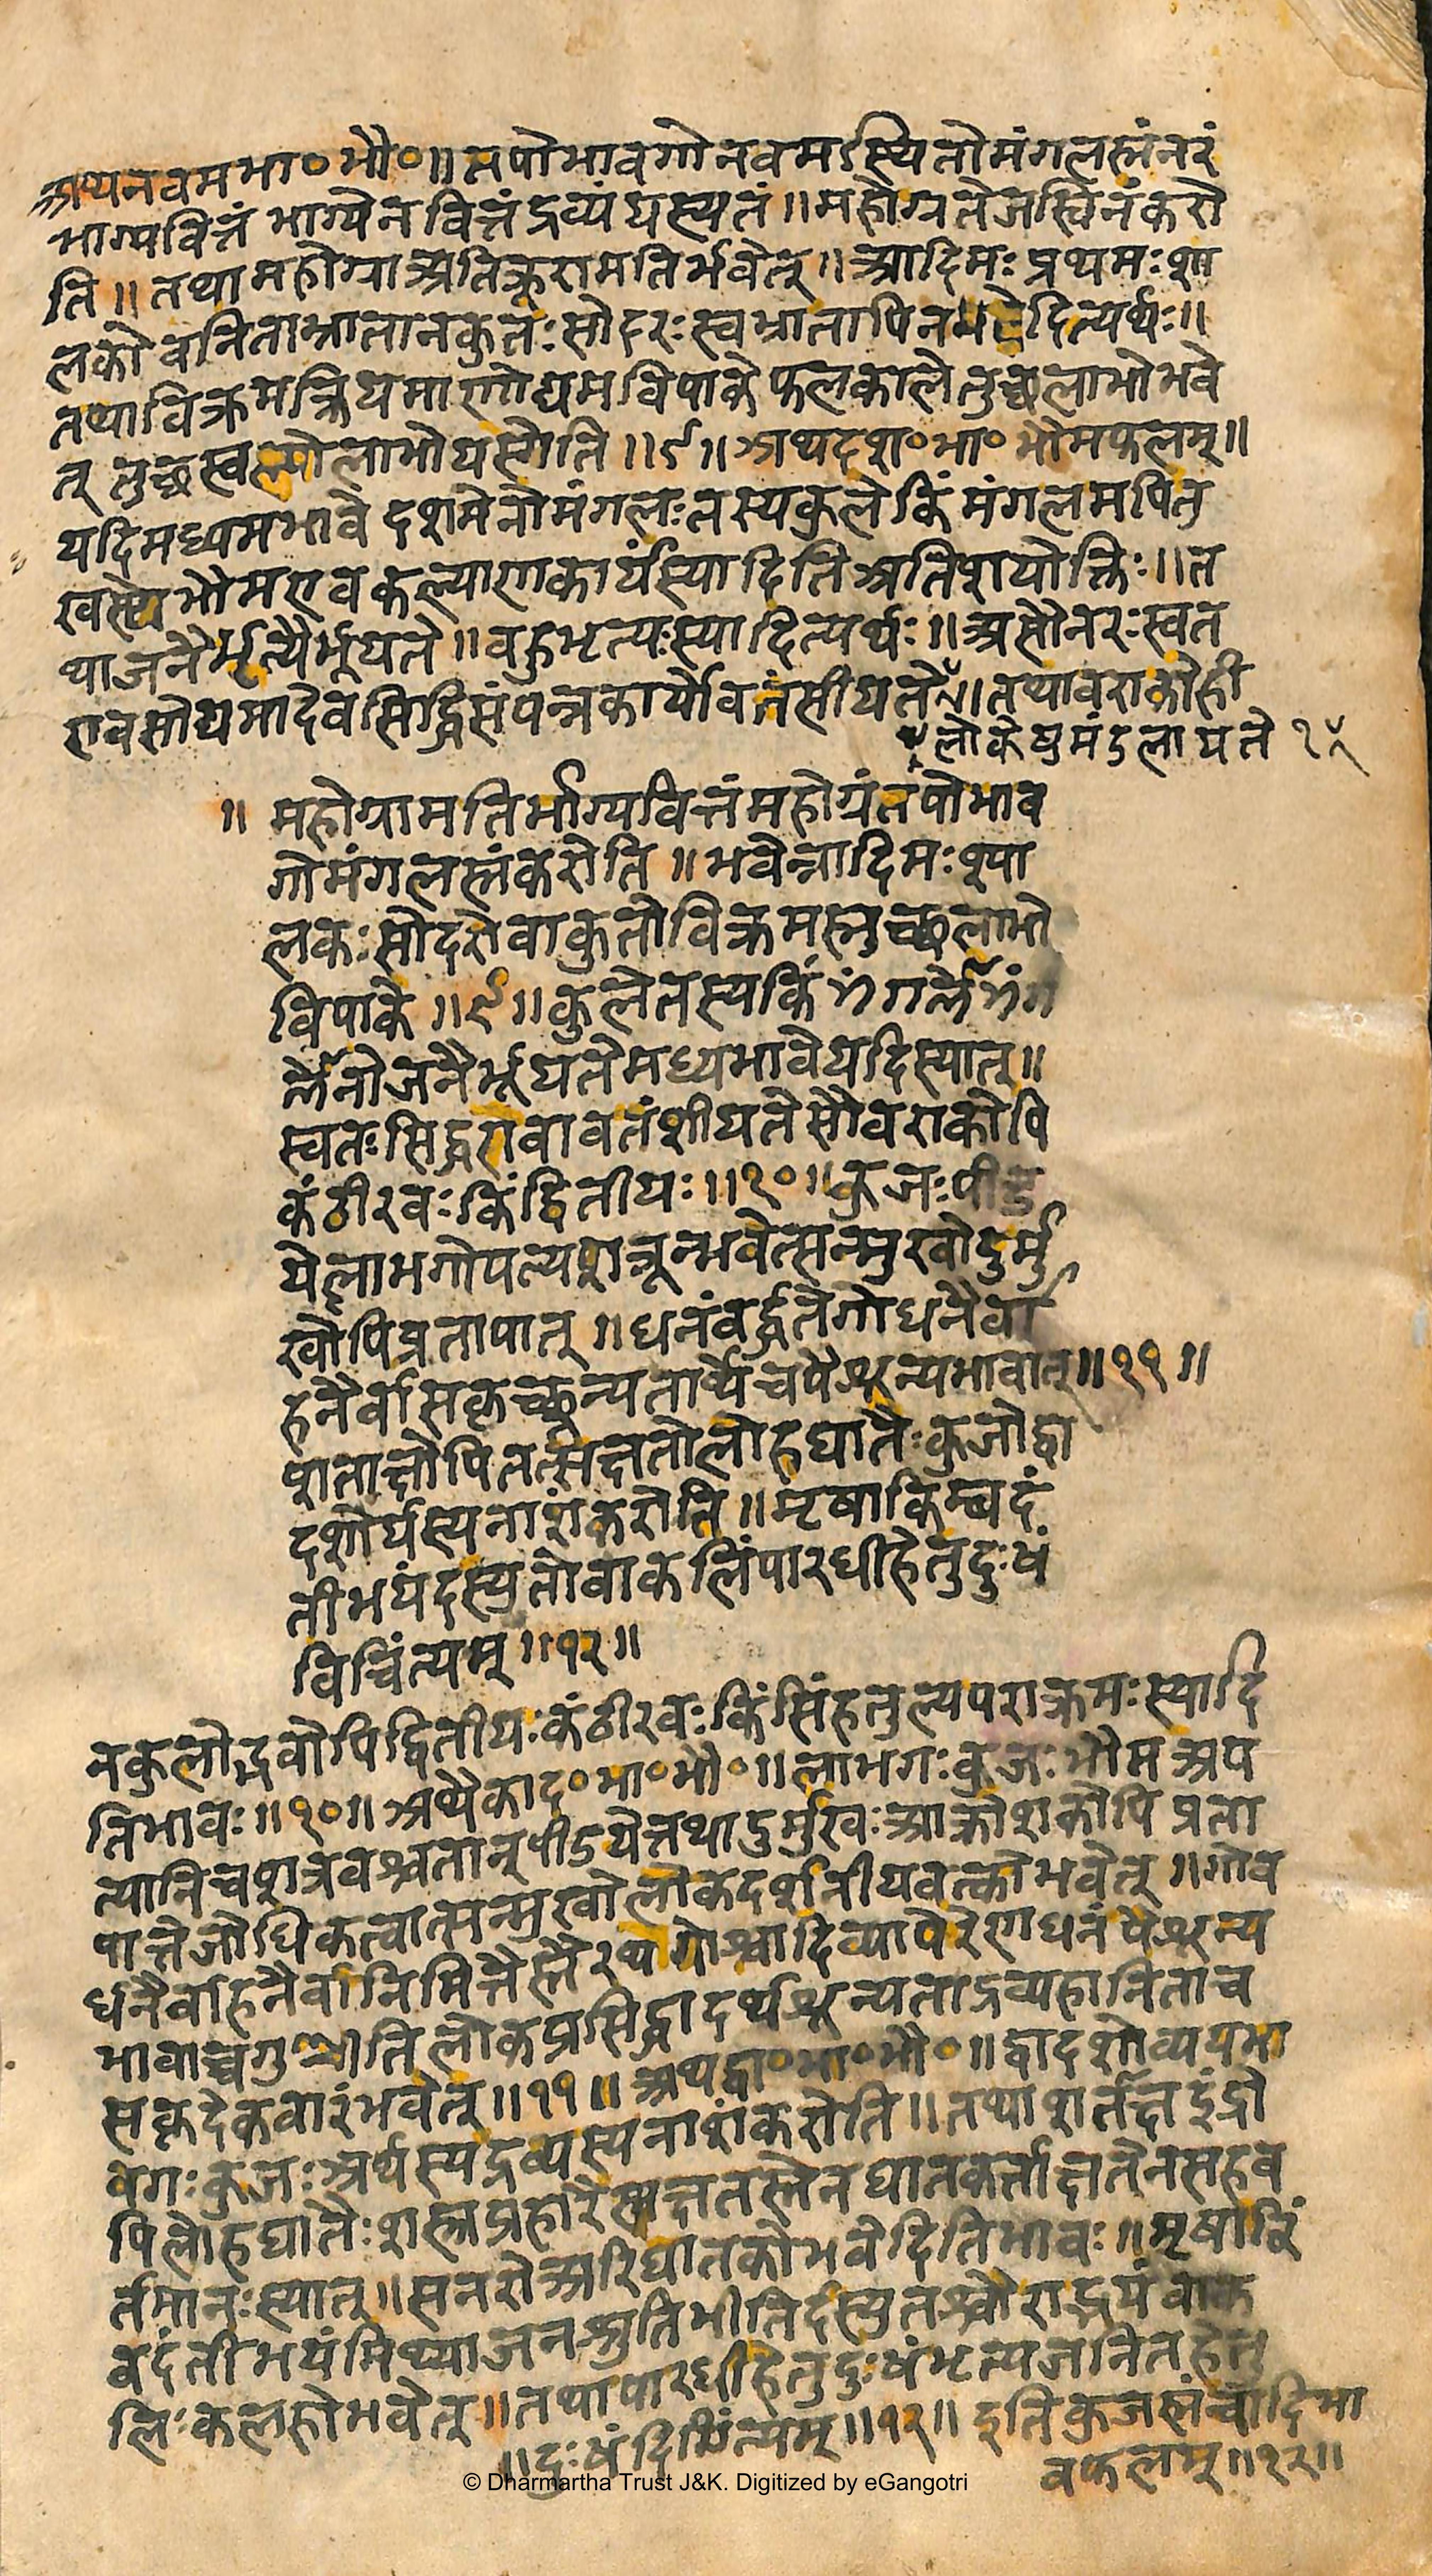 अथनवमभा॰भौ॰॥तपोभावगोनवमऽस्थितोमंगलस्तंनरं
भाग्यवित्तंभाग्येनवित्तंद्रव्यंयस्यतं॥महोग्रतेजस्विनंकरो
ति॥तथामहोग्राअतिक्रूरामतिर्भवेत्॥आदिमःप्रथमःश्या
लकोवनिताभ्रातानकुतःसोदरःस्वभ्रातापिनभवेदित्यर्थः॥
तथाविक्रमक्रियमाणोद्यमविपाकेफलकालेतुच्छलाभोभवे
त्तुच्छस्वल्पोलाभोयस्येति॥९॥अथदश॰भा॰भौमफलम्॥
यदिमध्यमभावेदशमेनोमंगलःतस्यकुलेकिंमंगलमपितु
भौमएवकल्याणकार्यस्यादितिअतिशयोक्तिः॥त
थाजनैर्भृत्यैर्भूयते॥बहुभृत्यःस्यादित्यर्थः॥असौनरःस्वत
एवसोद्यमादेवसिद्धिसंपन्नकार्योवतंसीयते॥तथावराकोही
लोकेषुमंडलायते १५
॥महोग्रामतिर्भाग्यवित्तंमहोग्रंतपोभाव
गोमंगलस्तंकरोति॥भवेन्नादिमःश्या
लकःसोदरोवाकुतोविक्रमस्तुच्छलाभो
विपाके॥९॥कुलेतस्यकिंमंगलंमंग
लोनोजनैर्भूयतेमध्यभावेयदिस्यात्॥
स्वतःसिद्धएवावतंशीयतेसौवराकोपि
कंठीरवःकिंद्वितीयः॥१०॥कुजःपीड
येल्लाभगोपत्यशत्रून्भवेत्सन्मुखोदुर्मु
खोपिप्रतापात्॥धनंवर्द्धतेगोधनैर्वा
हनैर्वासकृच्छून्यतार्थेचपैशून्यभावात्॥११॥
शतात्तोपितत्सत्ततोलोहघातैःकुजोद्वा
दशोर्थस्यनाशंकरोति॥मृषाकिम्वदं
तीभयंदस्युतोवाकलिंपारधीहेतुदुःखं
विचिंत्यम्॥१२॥
नकुलोद्भवोपिद्वितीयःकंठीरवःकिंसिंहतुल्यपराक्रमःस्यादि
तिभावः॥१०॥अथैकाद॰भा॰भौ॰॥लाभगःकुजःभौमअप
त्यानिचशत्रवश्चतान्पीडयेत्तथादुर्मुखःआक्रोशकोपिप्रता
पात्तेजोधिकत्वात्सन्मुखोलोकदर्शनीयवत्कोभवेत्॥गोव
र्धनैर्वाहनैर्वानिमित्तैस्तैरथगोश्वादिव्यापेरेणधनंपैशून्य
भावाच्चगुप्तीतिलोकप्रसिद्धादर्थशून्यताद्रव्यहानिताच
सकृदेकवारंभवेत्॥११॥अथद्वा॰भा॰भौ॰॥द्वादशोव्ययभा
वगःकुजःअर्थस्यद्रव्यस्यनाशंकरोति॥तथा
पिलोहघातैःशस्त्रप्रहारै घातकर्ता तेनसहव
र्तमानःस्यात्॥सनरोअरिघातकोभवेदितिभावः॥मृषाकिं
वदंतीभयंमिथ्याजनश्रुतिभीतिर्दस्युतश्चौराद्भयंवाक
लिःकलहोभवेत्॥तथापारधीहेतुदुःखंभृत्यजनितहेतु
॥दुःखं ॥१२॥इतिकुजस्तंन्वादिभा
वफलम्॥१२॥
© Dharmartha Trust J&K. Digitized by eGangotri